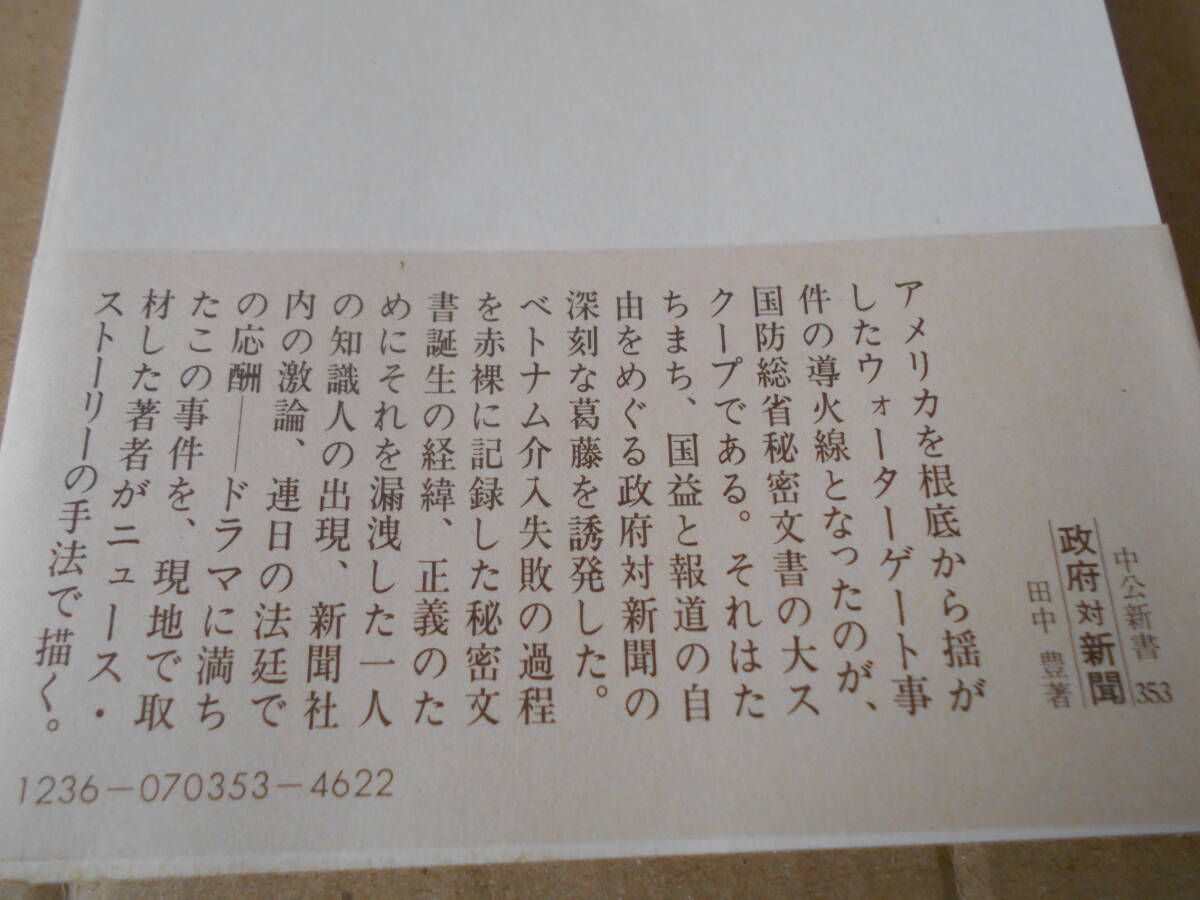 中公新書 353
政府対新聞
田中 豊著
アメリカを根底から揺が
したウォーターゲート事
件の導火線となったのが、
国防総省秘密文書の大ス
クープである。それはた
ちまち、国益と報道の自
由をめぐる政府対新聞の
深刻な葛藤を誘発した。
ベトナム介入失敗の過程
を赤裸に記録した秘密文
書誕生の経緯、正義のた
めにそれを漏洩した一人
の知識人の出現、新聞社
内の激論、連日の法廷で
の応酬――ドラマに満ち
たこの事件を、現地で取
材した著者がニュース・
ストーリーの手法で描く。
1236-070353-4622